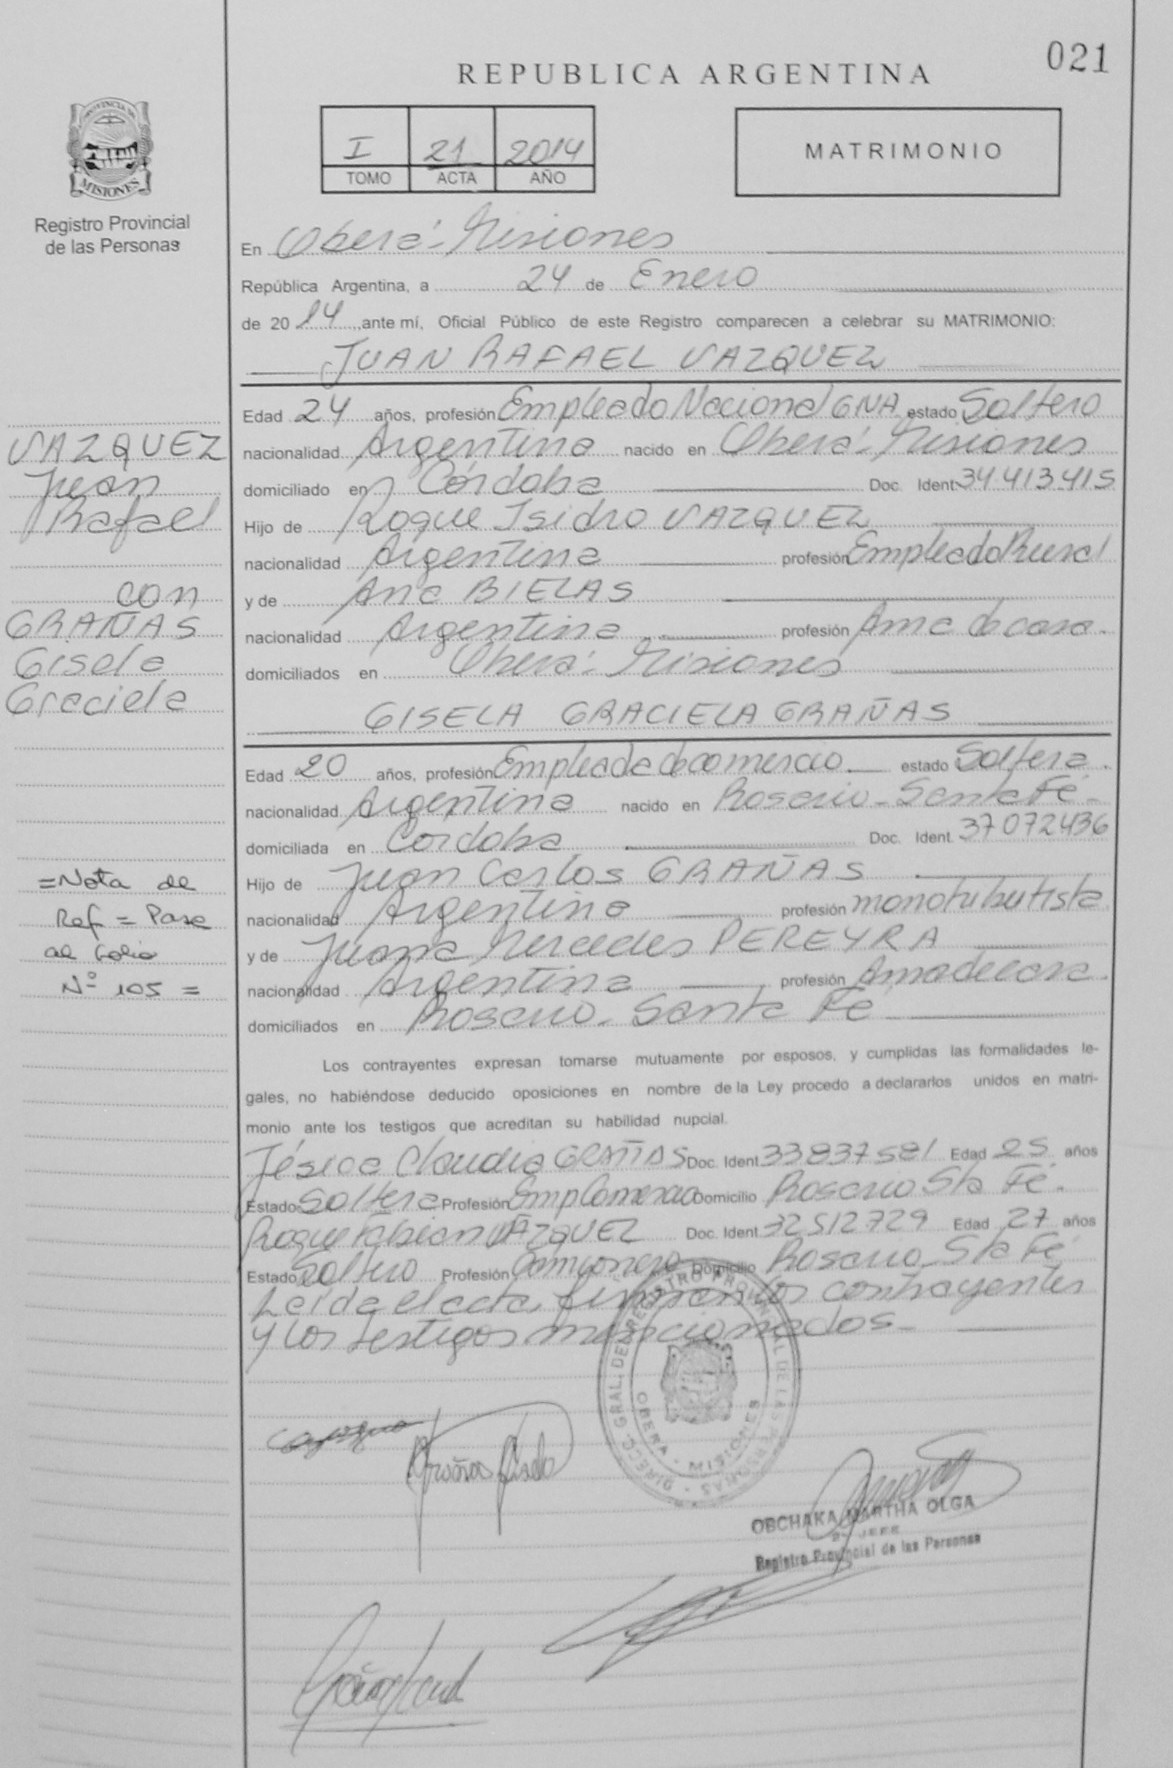 021
REPUBLICA ARGENTINA
I 21 2014
TOMO ACTA AÑO
MATRIMONIO
PROVINCIA DE
MISIONES
Registro Provincial
de las Personas
En Oberá - Misiones
República Argentina, a 24 de Enero
de 20 14 ante mí, Oficial Público de este Registro comparecen a celebrar su MATRIMONIO:
JUAN RAFAEL VAZQUEZ
Edad 24 años, profesión Empleado Nacional GNA estado Soltero
nacionalidad Argentina nacido en Oberá - Misiones
domiciliado en Córdoba Doc. Ident. 34413415
Hijo de Roque Isidro VAZQUEZ
nacionalidad Argentina profesión Empleado Rural
y de Ana BIELAS
nacionalidad Argentina profesión Ama de casa.
domiciliados en Oberá - Misiones
GISELA GRACIELA GRAÑAS
Edad 20 años, profesión Empleada de comercio estado Soltera.
nacionalidad Argentina nacido en Rosario - Santa Fé -
domiciliada en Córdoba Doc. Ident. 37072436
Hijo de Juan Carlos GRAÑAS
nacionalidad Argentina profesión monotributista
y de Juana Mercedes PEREYRA
nacionalidad Argentina profesión Ama de casa.
domiciliados en Rosario - Santa Fé
Los contrayentes expresan tomarse mutuamente por esposos, y cumplidas las formalidades le-
gales, no habiéndose deducido oposiciones en nombre de la Ley procedo a declararlos unidos en matri-
monio ante los testigos que acreditan su habilidad nupcial.
Jésica Claudia GRAÑAS Doc. Ident. 33837581 Edad 25 años
Estado Soltera Profesión Emp Comercio Domicilio Rosario Sta Fé.
Roque Fabian VAZQUEZ Doc. Ident. 32512729 Edad 27 años
Estado Soltero Profesión Camionero Domicilio Rosario Sta Fé
Leída el acta, firman los contrayentes
y los testigos mencionados -
VAZQUEZ
Juan
Rafael
con
GRAÑAS
Gisela
Graciela
= Nota de
Ref = Pase
al Folio
N° 105 =
DIRECC. GRAL. DEL REGISTRO PROVINCIAL DE LAS PERSONAS
OBERA - MISIONES
Grañas Gisela
OBCHAKA MARTHA OLGA
JEFE
Registro Provincial de las Personas